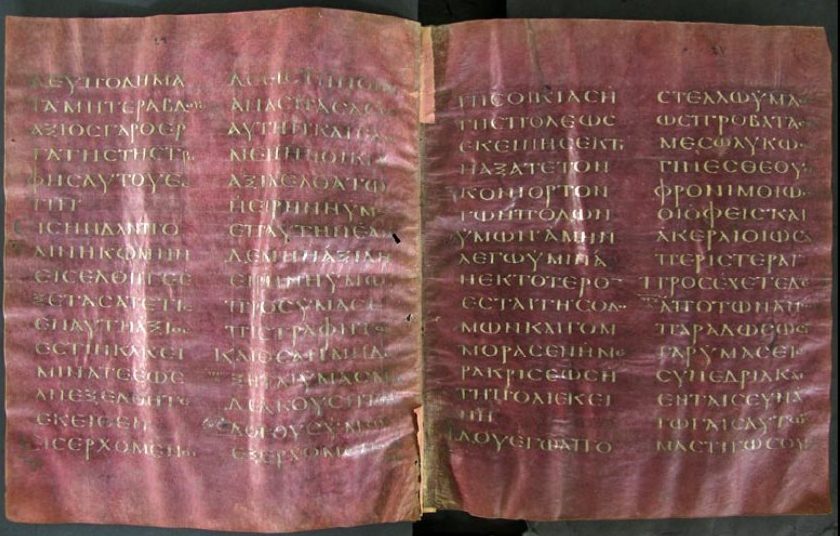 ΔΕΥΠΟΔΗΜΑ
ΤΑΜΗΤΕΡΑΒΔΟΥϹ
ΑΞΙΟϹΓΑΡΟΕΡ
ΓΑΤΗϹΤΗϹΤΡΟ
ΦΗϹΑΥΤΟΥΕϹ
ΤΙΝ
ΕΙϹΗΝΔΑΝΠΟ
ΛΙΝΗΚΩΜΗΝ
ΕΙϹΕΛΘΗΤΕΕ
ΞΕΤΑϹΑΤΕΤΙϹ
ΕΝΑΥΤΗΑΞΙΟϹ
ΕϹΤΙΝΚΑΚΕΙ
ΜΙΝΑΤΕΕΩϹ
ΑΝΕΞΕΛΘΗΤΕ
ΕΚΕΙΘΕΝ
ΕΙϹΕΡΧΟΜΕΝΟΙ
ΔΕΕΙϹΤΗΝΟΙΚΙ
ΑΝΑϹΠΑϹΑϹΘΕ
ΑΥΤΗΝΚΑΙΕΑ
ΝΕΝΗΗΟΙΚΙΑ
ΑΞΙΑΕΛΘΑΤΩ
ΗΕΙΡΗΝΗΥΜΩ
ΕΠΑΥΤΗΝΕΑΝ
ΔΕΜΗΗΑΞΙΑΗ
ΕΙΡΗΝΗΥΜΩ
ΠΡΟϹΥΜΑϹΕ
ΠΙϹΤΡΑΦΗΤΩ
ΚΑΙΟϹΑΝΜΗΔΕ
ΞΗΤΑΙΥΜΑϹΜΗ
ΔΕΑΚΟΥϹΗΤΟΥϹ
ΛΟΓΟΥϹΥΜΩΝ
ΕΞΕΡΧΟΜΕΝΟΙ
ΤΗϹΟΙΚΙΑϹΗ
ΤΗϹΠΟΛΕΩϹ
ΕΚΕΙΝΗϹΕΚΤΙ
ΝΑΞΑΤΕΤΟΝ
ΚΟΝΙΟΡΤΟΝ
ΤΩΝΠΟΔΩΝ
ΥΜΩΝΑΜΗΝ
ΛΕΓΩΥΜΙΝΑ
ΝΕΚΤΟΤΕΡΟΝ
ΕϹΤΑΙΓΗϹΟΔΟ
ΜΩΝΚΑΙΓΟΜ
ΜΟΡΑϹΕΝΗΜΕ
ΡΑΚΡΙϹΕΩϹΗ
ΤΗΠΟΛΙΕΚΕΙ
ΝΗ
ΙΔΟΥΕΓΩΑΠΟ
ϹΤΕΛΛΩΥΜΑϹ
ΩϹΠΡΟΒΑΤΑ
ΜΕϹΩΛΥΚΩ
ΓΙΝΕϹΘΕΟΥ
ΦΡΟΝΙΜΟΙΩϹ
ΟΙΟΦΕΙϹΚΑΙ
ΑΚΕΡΑΙΟΙΩϹ
ΠΕΡΙϹΤΕΡΑΙ
ΠΡΟϹΕΧΕΤΕΔΕ
ΑΠΟΤΩΝΑΝ
ΠΑΡΑΔΩϹΟΥϹΙ
ΓΑΡΥΜΑϹΕΙϹ
ϹΥΝΕΔΡΙΑΚΑΙ
ΕΝΤΑΙϹϹΥΝΑ
ΓΩΓΑΙϹΑΥΤΩ
ΜΑϹΤΙΓΩϹΟΥ